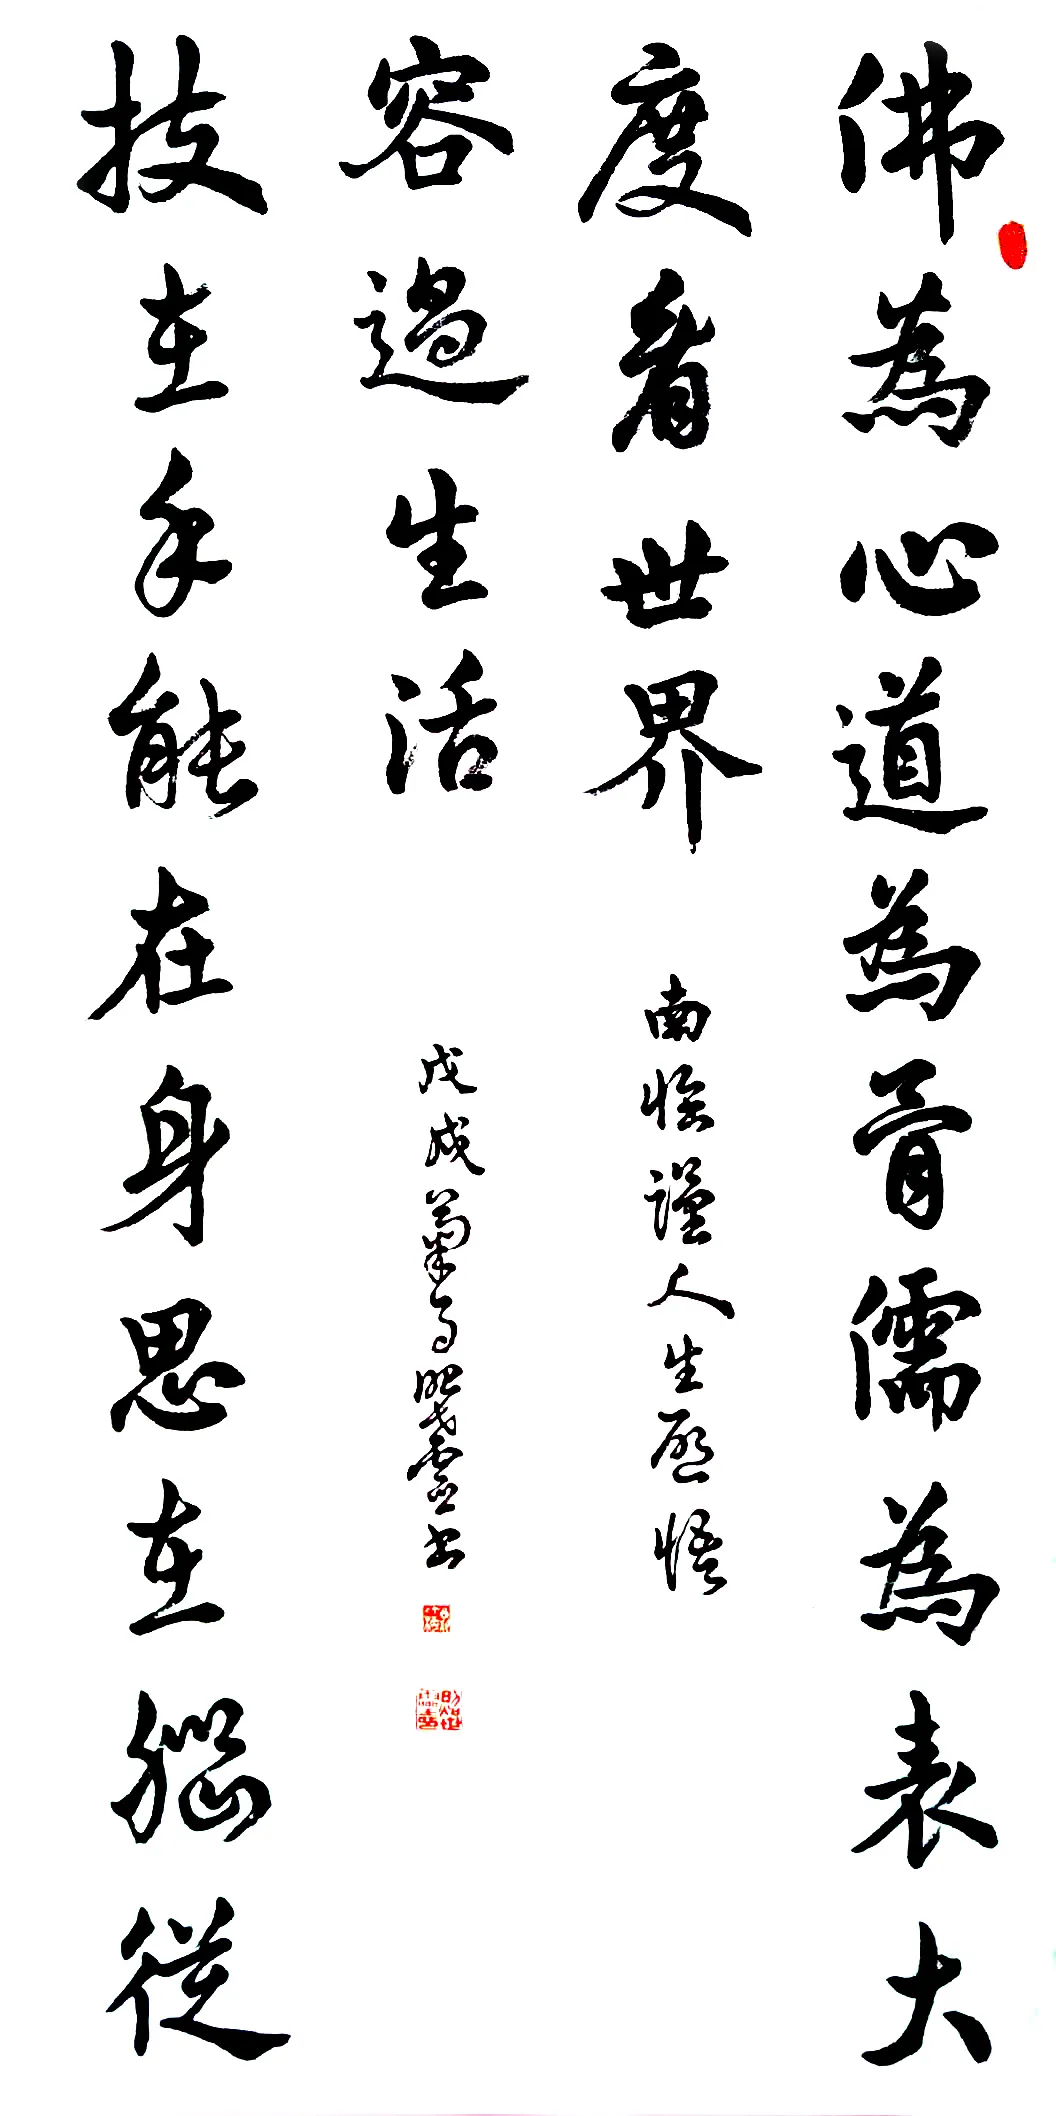 佛為心道為骨儒為表大
度看世界
南懷謹人生悟
技在手能在身思在腦從
容過生活
戊戌菊月書